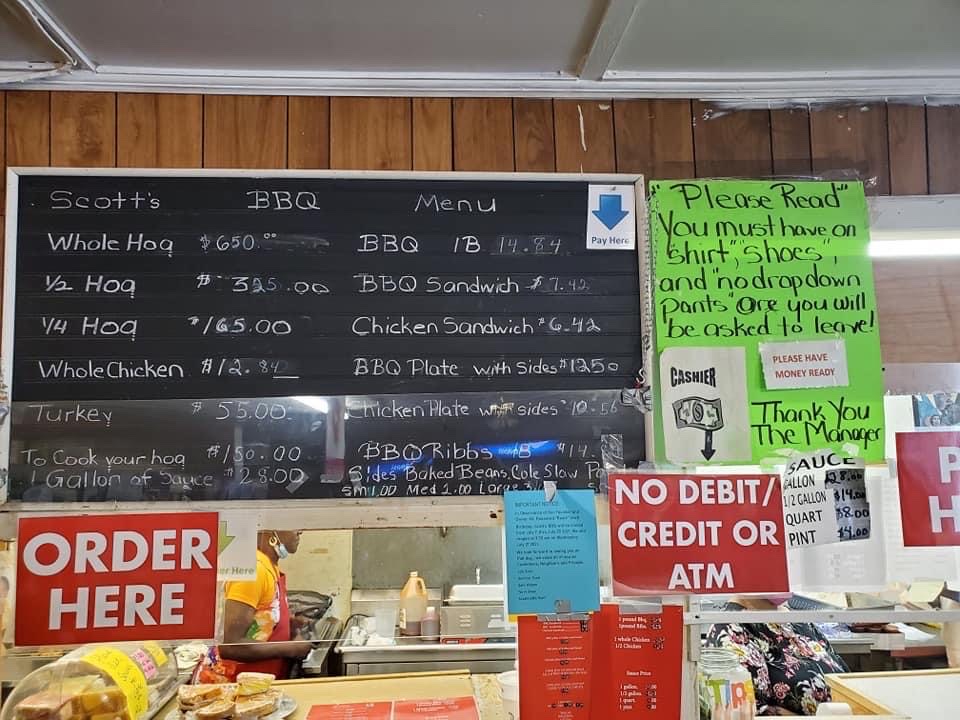 Scott's BBQ Menu
Whole Hog $650.00
1/2 Hog $325.00
1/4 Hog $165.00
Whole Chicken $12.84
Turkey $55.00
To Cook your hog $150.00
1 Gallon of Sauce $28.00
BBQ lB 14.84
BBQ Sandwich $7.42
Chicken Sandwich $6.42
BBQ Plate with Sides $12.50
Chicken Plate with sides 10.56
BBQ Ribbs lB $14.
Sides Baked Beans, Cole Slaw
Sm 1.00 Med 2.00 Large
Pay Here
"Please Read"
You must have on
"shirt", "shoes",
and "no drop down
pants" are you will
be asked to leave!
CASHIER
PLEASE HAVE
MONEY READY
Thank You
The Manager
ORDER
HERE
er Here
IMPORTANT NOTICE
NO DEBIT/
CREDIT OR
ATM
SAUCE
GALLON $28.00
1/2 GALLON $14.00
QUART $8.00
PINT $4.00
P
H
1 pound Bbq
1 pound Ribs
1 whole Chicken
1/2 Chicken
Sauce Price
1 gallon
1/2 gallon
1 quart
1 pint
TIPS